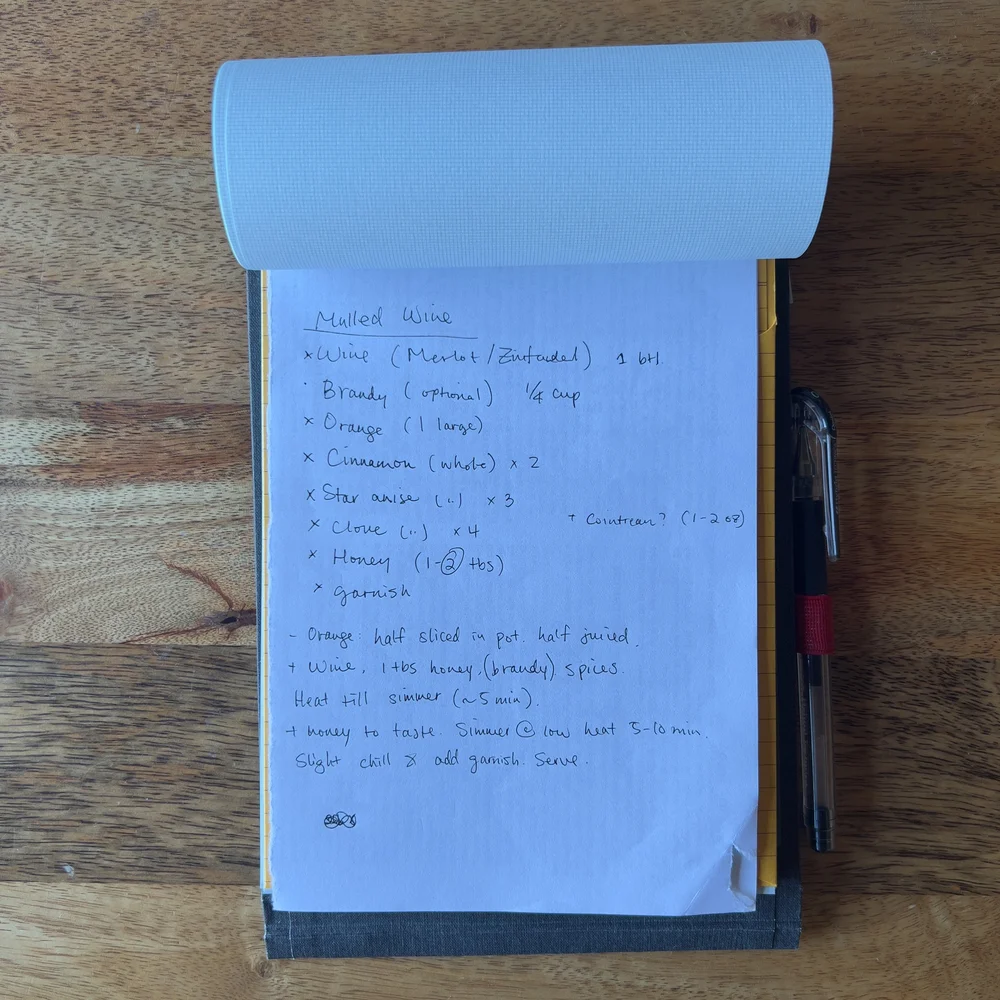 Mulled Wine
× Wine (Merlot/Zinfandel) 1 btl
· Brandy (optional) 1/4 cup
× Orange (1 large)
× Cinnamon (whole) × 2
× Star anise (..) × 3
+ Cointreau? (1-2 oz)
× Clove (..) × 4
× Honey (1-2 tbs)
× garnish
- Orange: half sliced in pot. half juiced.
+ Wine, 1 tbs honey, (brandy) spices.
Heat till simmer (~5 min).
+ honey to taste. Simmer @ low heat 5-10 min.
Slight chill & add garnish. Serve.